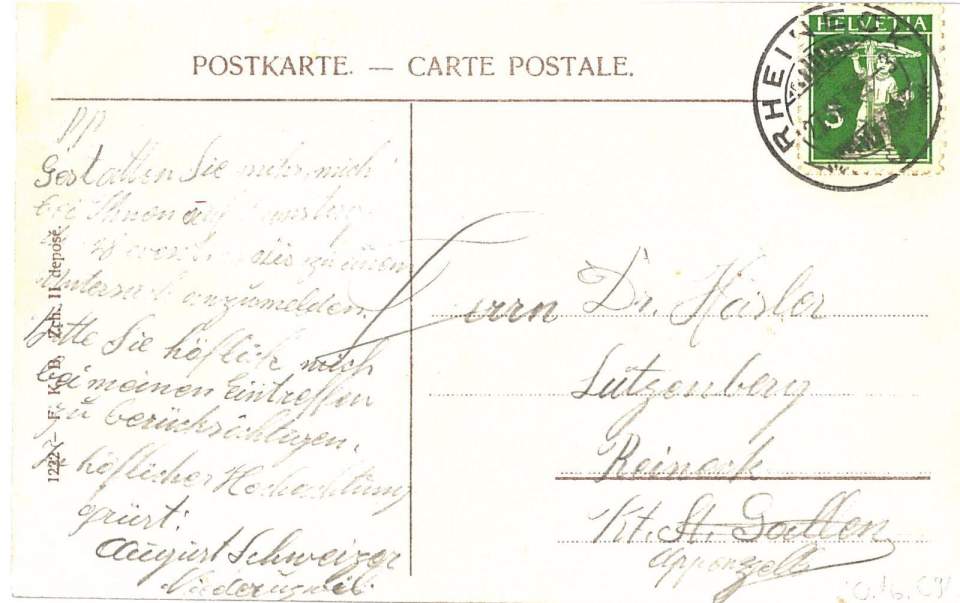 POSTKARTE. — CARTE POSTALE.
HELVETIA
RHEINECK
5
PP
Gestatten Sie mihr, mich
bei Ihnen auf
zu einem
anzumelden
bitte Sie höflich mich
bei meinen Eintreffen
zu berücksichtigen.
höflicher Hochachtung
grüst:
August Schweizer
Niederuzwil.
1222 — F. K. B. Zch. II deposé.
Herrn Dr. Häsler
Lutzenberg
Reineck
Kt. St. Gallen
Appenzell